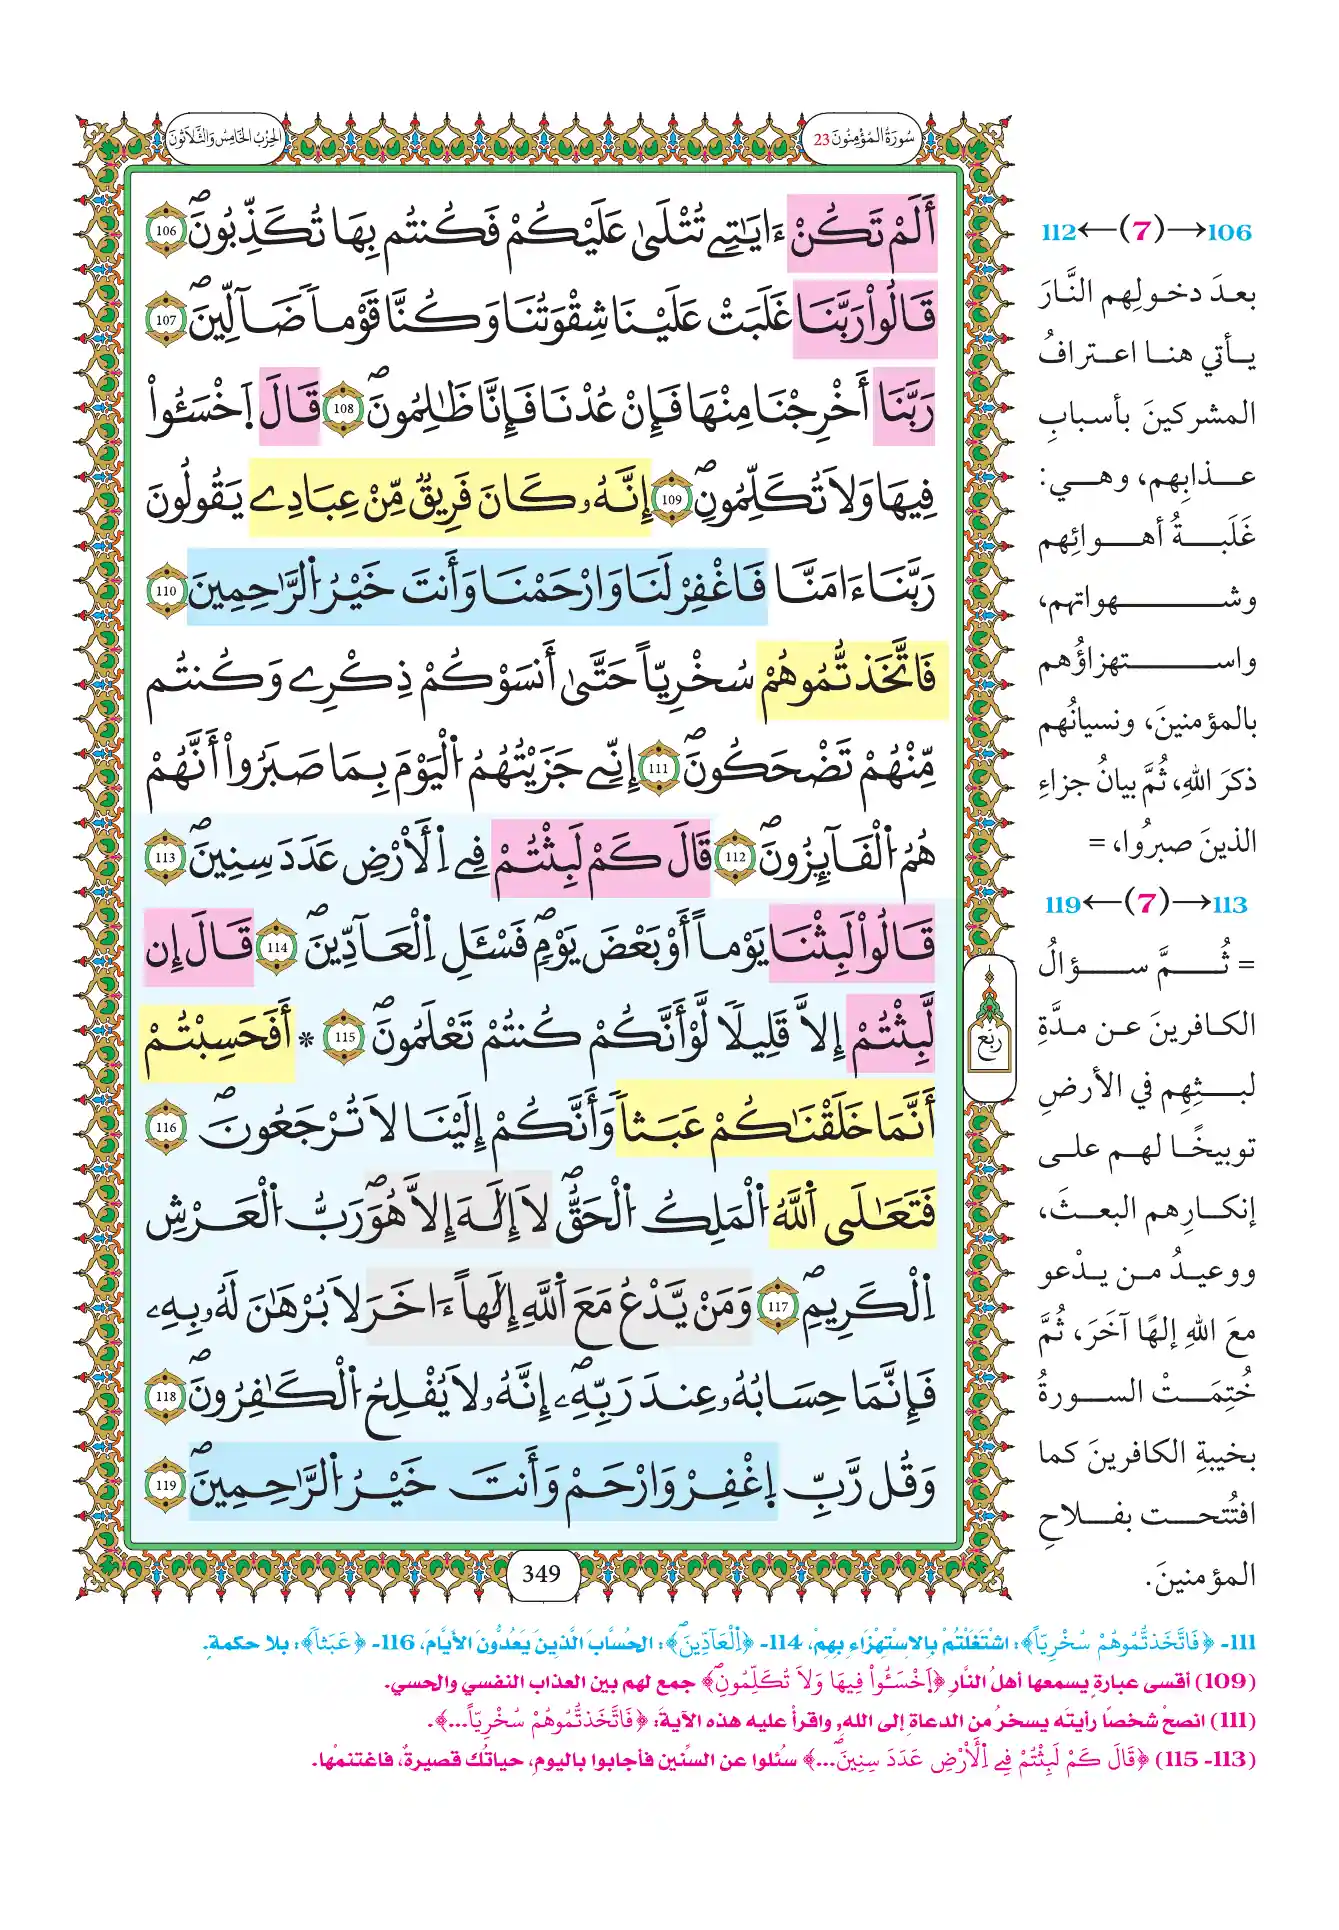 سُورَةُ الْمُؤْمِنُونَ 23
الحِزْبُ الخَامِسُ وَالثَّلَاثُونَ
أَلَمْ تَكُنْ ءَايَٰتِے تُتْلَىٰ عَلَيْكُمْ فَكُنتُم بِهَا تُكَذِّبُونَۖ 106
قَالُواْ رَبَّنَا غَلَبَتْ عَلَيْنَا شِقْوَتُنَا وَكُنَّا قَوْماٗ ضَآلِّينَۖ 107
رَبَّنَا أَخْرِجْنَا مِنْهَا فَإِنْ عُدْنَا فَإِنَّا ظَٰلِمُونَۖ 108 قَالَ اَ۪خْسَـُٔواْ
فِيهَا وَلَا تُكَلِّمُونِۖ 109 إِنَّهُۥ كَانَ فَرِيقٞ مِّنْ عِبَادِے يَقُولُونَ
رَبَّنَا ءَامَنَّا فَاغْفِرْ لَنَا وَارْحَمْنَا وَأَنتَ خَيْرُ اُ۬لرَّٰحِمِينَ 110
فَاتَّخَذتُّمُوهُمْ سُخْرِيّاً حَتَّىٰ أَنسَوْكُمْ ذِكْرِے وَكُنتُم
مِّنْهُمْ تَضْحَكُونَۖ 111 إِنِّے جَزَيْتُهُمُ اُ۬لْيَوْمَ بِمَا صَبَرُواْ أَنَّهُمْ
هُمُ اُ۬لْفَآئِزُونَۖ 112 قَالَ كَمْ لَبِثْتُمْ فِے اِ۬لْأَرْضِ عَدَدَ سِنِينَۖ 113
قَالُواْ لَبِثْنَا يَوْماً أَوْ بَعْضَ يَوْمٖۖ فَسْـَٔلِ اِ۬لْعَآدِّينَۖ 114 قَالَ إِن
لَّبِثْتُمْ إِلَّا قَلِيلاٗ لَّوْ أَنَّكُمْ كُنتُمْ تَعْلَمُونَۖ 115 * أَفَحَسِبْتُمْ
أَنَّمَا خَلَقْنَٰكُمْ عَبَثاٗ وَأَنَّكُمْ إِلَيْنَا لَا تُرْجَعُونَۖ 116
فَتَعَٰلَى اَ۬للَّهُ اُ۬لْمَلِكُ اُ۬لْحَقُّۖ لَا إِلَٰهَ إِلَّا هُوَۖ رَبُّ اُ۬لْعَرْشِ
اِ۬لْكَرِيمِۖ 117 وَمَنْ يَّدْعُ مَعَ اَ۬للَّهِ إِلَٰهاً ءَاخَرَ لَا بُرْهَٰنَ لَهُۥ بِهِۦ
فَإِنَّمَا حِسَابُهُۥ عِندَ رَبِّهِۦۖ إِنَّهُۥ لَا يُفْلِحُ اُ۬لْكَٰفِرُونَۖ 118
وَقُل رَّبِّ اِ۪غْفِرْ وَارْحَمْ وَأَنتَ خَيْرُ اُ۬لرَّٰحِمِينَۖ 119
رُبْع
349
106→(7)←112
بعدَ دخولِهم النَّارَ
يأتي هنا اعترافُ
المشركينَ بأسبابِ
عذابِهم، وهي:
غَلَبةُ أهوائِهم
وشهواتهم،
واستهزاؤُهم
بالمؤمنينَ، ونسيانُهم
ذكرَ اللهِ، ثُمَّ بيانُ جزاءِ
الذينَ صبرُوا، =
113→(7)←119
= ثُمَّ سؤالُ
الكافرينَ عن مدَّةِ
لبثِهِم في الأرضِ
توبيخًا لهم على
إنكارِهم البعثَ،
ووعيدُ من يدْعو
معَ اللهِ إلهًا آخَرَ، ثُمَّ
خُتِمَتْ السورةُ
بخيبةِ الكافرينَ كما
افتُتحت بفلاحِ
المؤمنينَ.
111- ﴿فَاتَّخَذتُّمُوهُمْ سُخْرِيّاً﴾: اشْتَغَلْتُمْ بِالاِسْتِهْزَاءِ بِهِمْ، 114- ﴿اِ۬لْعَآدِّينَۖ﴾: الحُسَّابَ الَّذِينَ يَعُدُّونَ الأيَّامَ، 116- ﴿عَبَثاٗ﴾: بلا حكمةٍ.
(109) أقسى عبارةٍ يسمعها أهلُ النَّارِ ﴿اَ۪خْسَـُٔواْ فِيهَا وَلَا تُكَلِّمُونِۖ﴾ جمع لهم بين العذاب النفسي والحسي.
(111) انصحْ شخصًا رأيتَه يسخرُ من الدعاةِ إلى اللهِ، واقرأْ عليه هذه الآيةَ: ﴿فَاتَّخَذتُّمُوهُمْ سُخْرِيّاً...﴾.
(113- 115) ﴿قَالَ كَمْ لَبِثْتُمْ فِے اِ۬لْأَرْضِ عَدَدَ سِنِينَۖ...﴾ سُئلوا عن السِّنين فأجابوا باليومِ، حياتُك قصيرةٌ، فاغتنمْها.